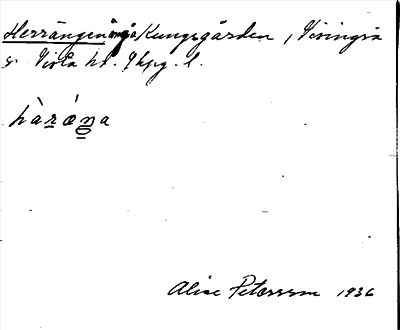 Herrängen änga Kungsgården, Visingsö
s. Vista hd. Jkpg. l.
hàrǽŋa
Alice Petersson 1936